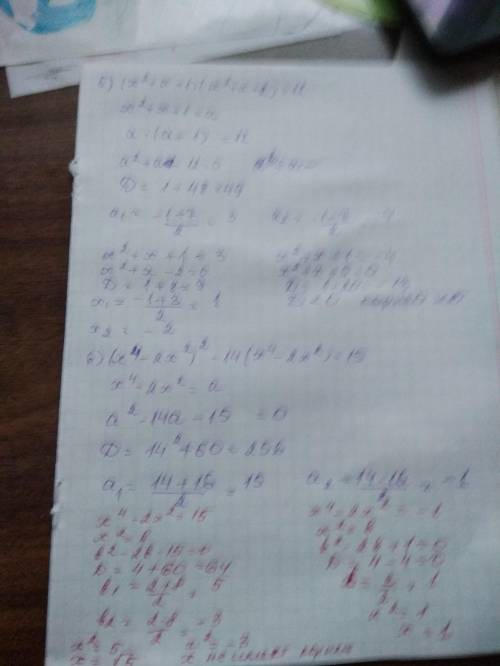 5) (x²+x+1)(x²+x+2)=12
x²+x+1=a
a·(a+1)=12
a²+a-12=0
D=1+48=49
a₁=(-1+7)/2=3 a₂=(-1-7)/2=-4
x²+x+1=3 x²+x+1=-4
x²+x-2=0 x²+x+5=0
D=1+8=9
x₁=(-1+3)/2=1
x₂=-2
6) (x⁴-2x²)²-14(x⁴-2x²)=15
x⁴-2x²=a
a²-14a-15=0
D=14²+60=256
a₁=(14+16)/2=15 a₂=(14-16)/2=-1
x⁴-2x²=15 x⁴-2x²=-1
x²=b x²=b
b²-2b-15=0 b²-2b+1=0
D=4+60=64 D=4-4=0
b₁=(2+8)/2=5 b=2/2=1
b₂=(2-8)/2=-3 x²=1
x²=5 x²=-3 x=1
x=√5 x не имеет